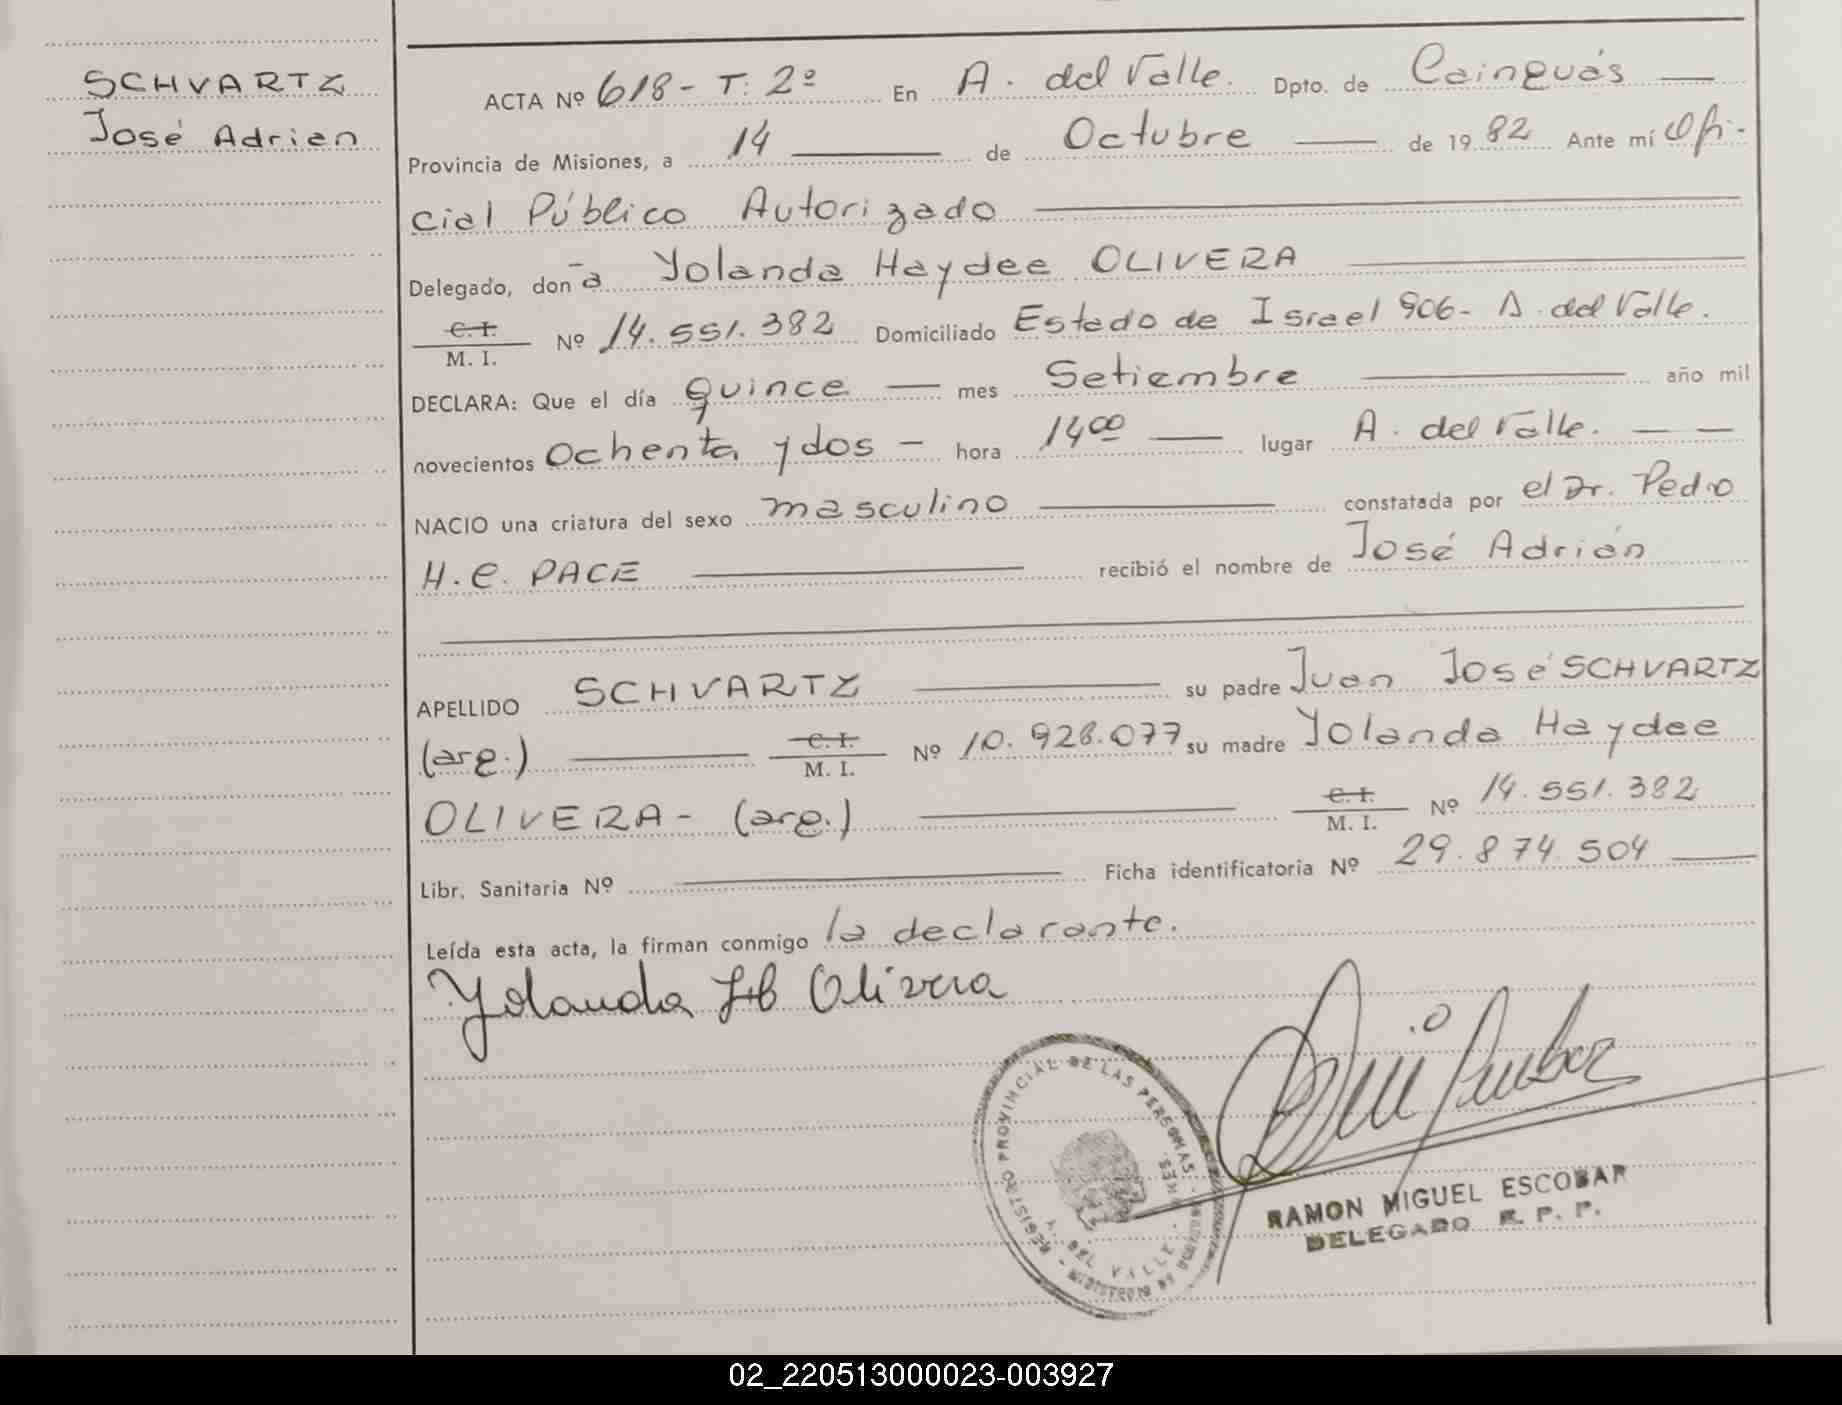 SCHVARTZ
José Adrian
ACTA Nº 618 - T: 2º En A. del Valle. Dpto. de Cainguás —
Provincia de Misiones, a 14 — de Octubre — de 19 82 Ante mí Ofi-
cial Público Autorizado —
Delegado, don ã Yolanda Haydee OLIVERA —
C. I.
M. I. Nº 14.551.382 Domiciliado Estado de Israel 906 - A. del Valle.
DECLARA: Que el día quince — mes Setiembre — año mil
novecientos ochenta y dos — hora 14 00 — lugar A. del Valle. — —
NACIO una criatura del sexo masculino — constatada por el Dr. Pedro
H. C. PACE — recibió el nombre de José Adrián
APELLIDO SCHVARTZ — su padre Juan José SCHVARTZ
(arg.) — C. I. M. I. Nº 10.928.077 su madre Yolanda Haydee
OLIVERA - (arg.) — C. I. M. I. Nº 14.551.382
Libr. Sanitaria Nº — Ficha identificatoria Nº 29.874.504 —
Leída esta acta, la firman conmigo la declarante.
Yolanda H Olivera
REGISTRO PROVINCIAL DE LAS PERSONAS -
A. DEL VALLE
RAMON MIGUEL ESCOBAR
DELEGADO R. P. P.
02_220513000023-003927